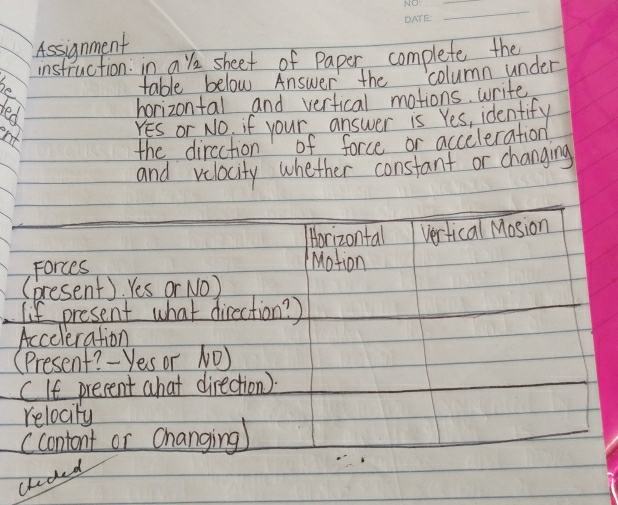 NO:
DATE:
Assignment
instruction: in a 1/2 sheet of Paper complete the
table below Answer the column under
horizontal and vertical motions. write
YES or NO. if your answer is Yes, identify
the direction of force or acceleration
and velocity whether constant or changing
Horizontal Motion
Vertical Mosion
Forces
(present). Yes or NO)
(if present what direction?)
Acceleration
(Present? - Yes or NO)
( If present what direction).
Velocity
(Contant or Changing)
checked
he
ded
ent